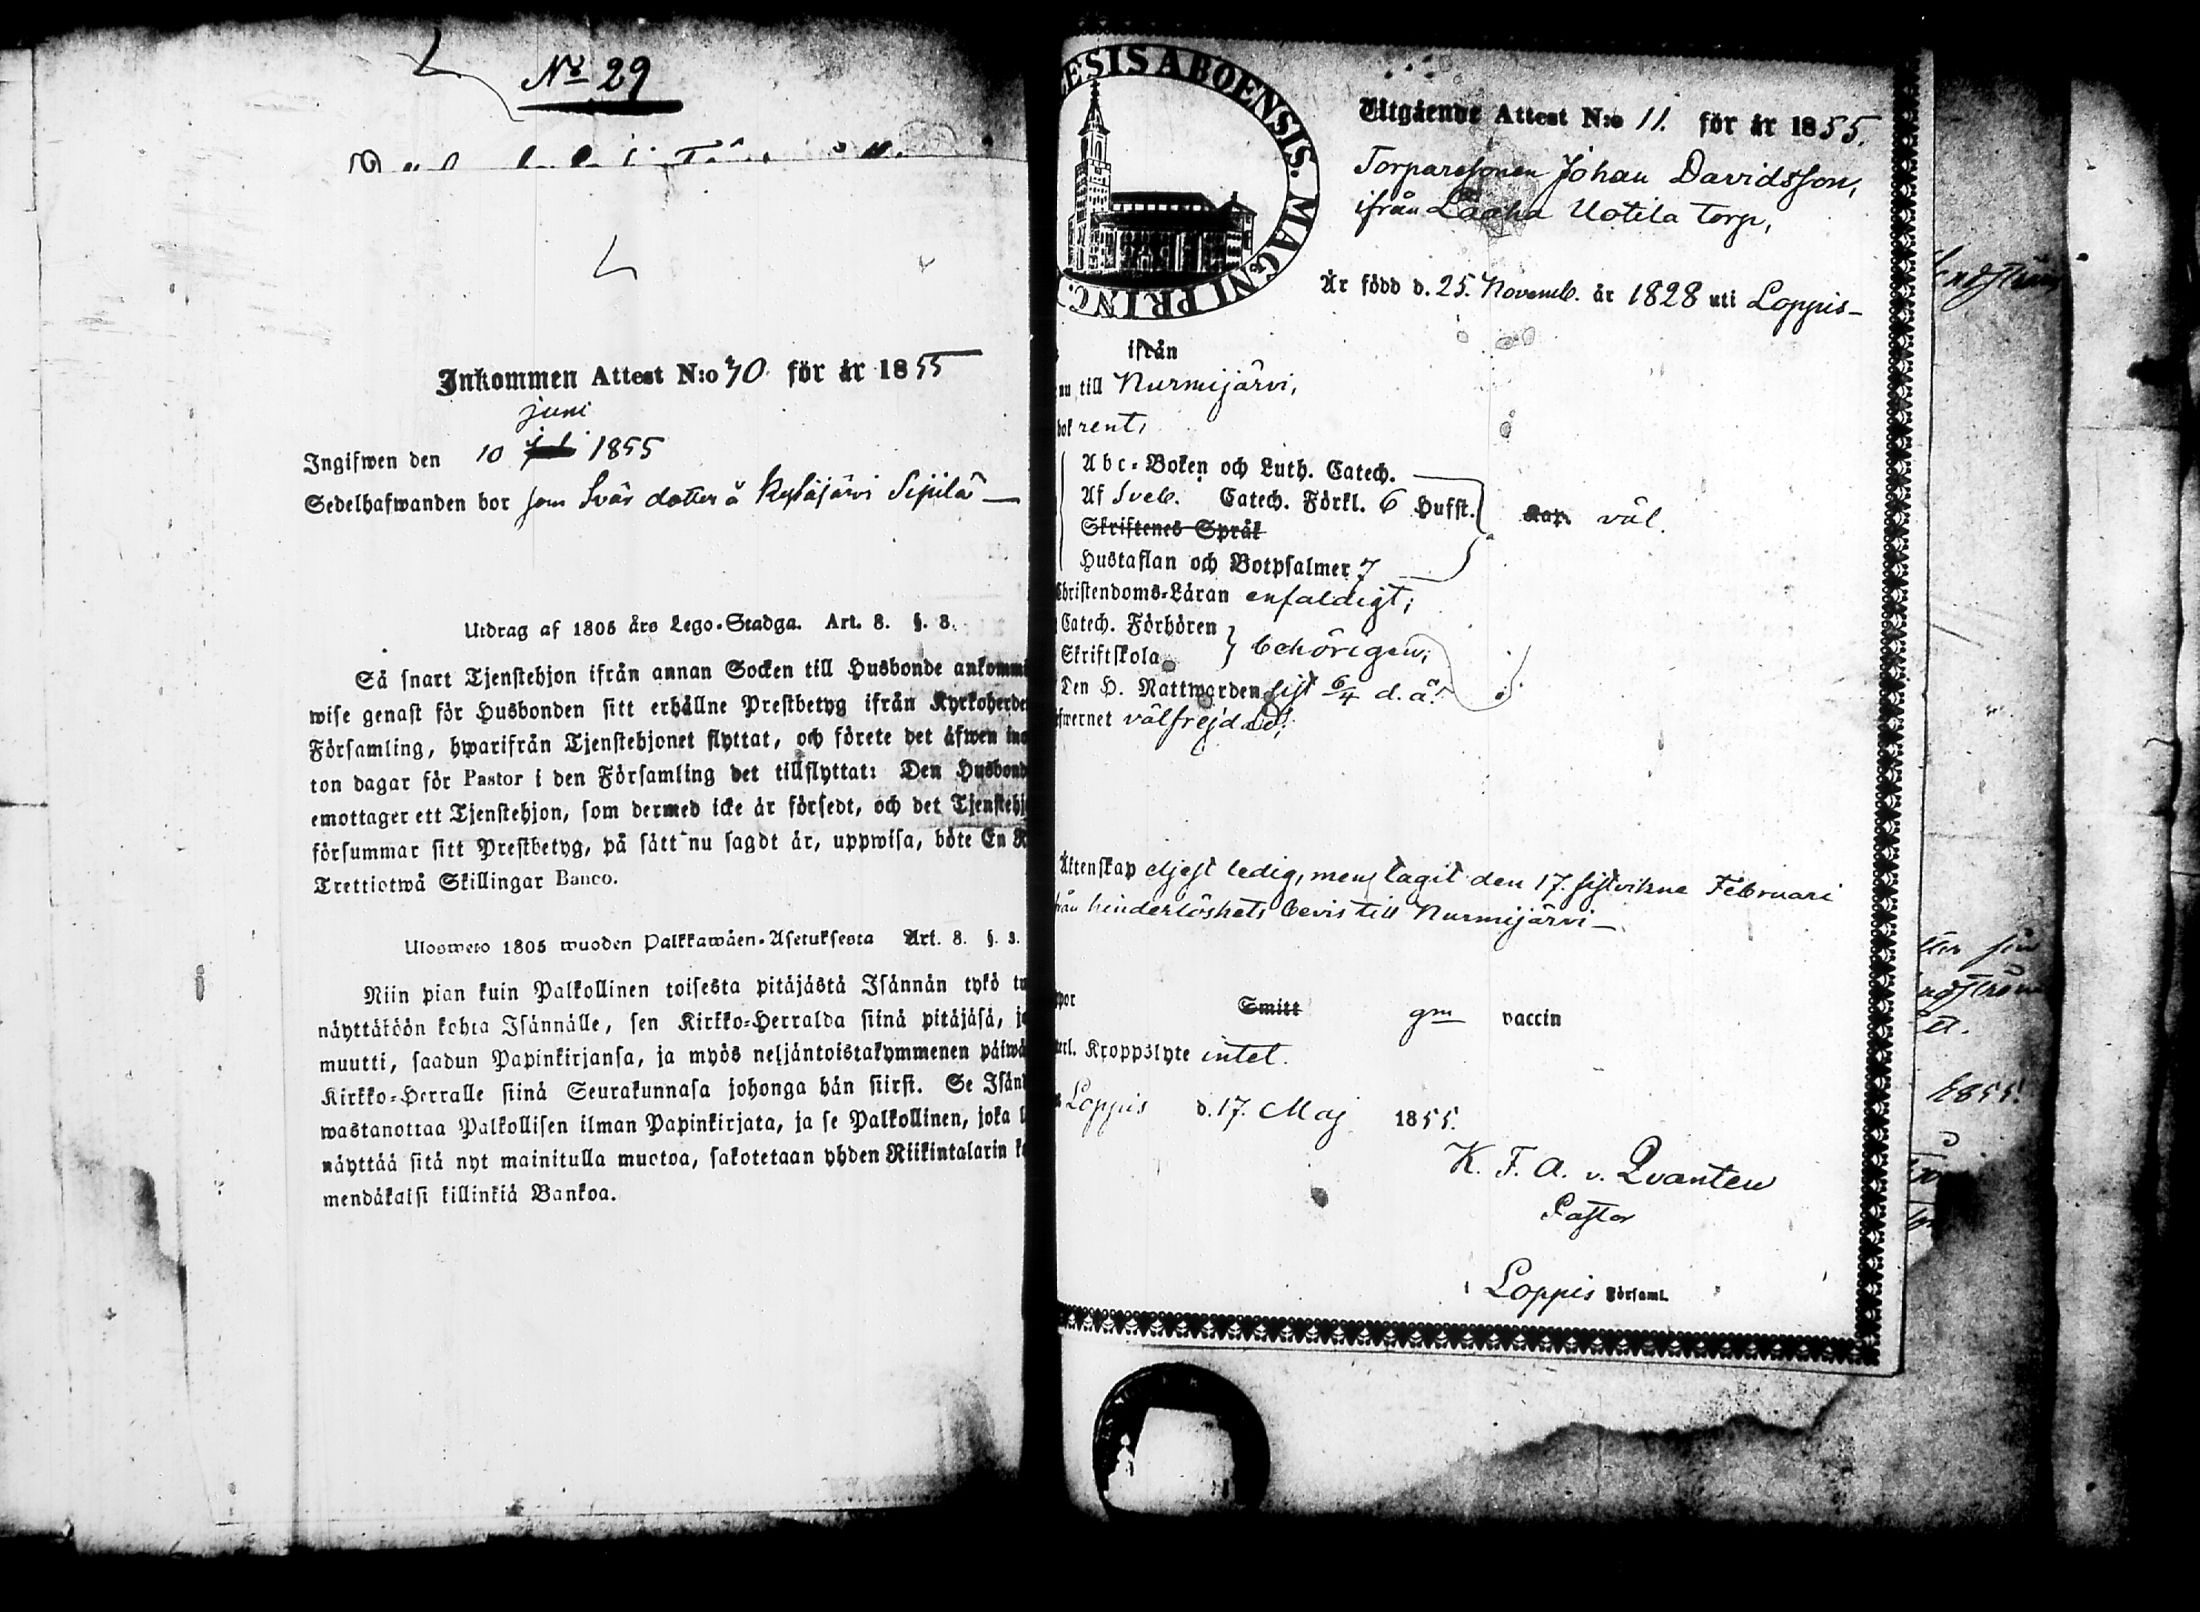 No 29
Inkommen Attest N:o 70 för år 1855
juni
Ingifwen den 10 1855
Sedelhafwanden bor som Svär dotter å Kytäjärvi Sipilä
Utdrag af 1805 års Lego-Stadga. Art. 8. §. 3.
Så snart Tjenstehjon ifrån annan Socken till Husbonde ankommi
wise genast för Husbonden sitt erhållne Prestbetyg ifrån Kyrkoherde
Församling, hwarifrån Tjenstehjonet flyttat, och förete det äfwen ino
ton dagar för Pastor i den Församling det tillflyttat: Den Husbond
emottager ett Tjenstehjon, som dermed icke är försedt, och det Tjenstehj
försummar sitt Prestbetyg, på sätt nu sagdt är, uppwisa, böte En R
Trettiotwå Skillingar Banco.
Ulosweto 1805 wuoden Palkkawäen-Asetuksesta Art. 8. §. 3.
Niin pian kuin Palkollinen toisesta pitäjästä Isännän tykö tu
näyttäköön kohta Isännälle, sen Kirkko-Herralda siinä pitäjäsä, jo
muutti, saadun Papinkirjansa, ja myös neljäntoistakymmenen päiwä
Kirkko-Herralle siinä Seurakunnasa johonga hän siirsi. Se Isän
wastanottaa Palkollisen ilman Papinkirjata, ja se Palkollinen, joka l
näyttää sitä nyt mainitulla muotoa, sakotetaan yhden Riikintalarin ko
mendäkaksi killinkiä Bankoa.
ESIS ABOENSIS. MAGNI PRINC.
Utgående Attest N:o 11. för år 1855.
Torparesonen Johan Davidsson,
ifrån Laaha Uotila torp,
Är född d. 25. Novemb. år 1828 uti Loppis
ifrån
nu till Nurmijärvi,
bok rent,
Abc-Boken och Luth. Catech.
Af Sveb. Catech. Förkl. 6 Hufst. Kap. väl.
Skriftenes Språk
Hustaflan och Botpsalmer 7
Christendoms-Läran enfaldigt;
Catech. Förhören
Skriftskola behörigen;
Den H. Nattwarden sist 6/4 d. å.
efwernet välfrejdad;
Äktenskap eljest ledig, men tagit den 17. sistvikne Februari
från hinderlöshets bevis till Nurmijärvi
ppor Smitt gm vaccin
terl. Kroppslyte intet.
Loppis d. 17. Maj 1855.
K. F. A. v. Qvanten
Pastor
i Loppis Församl.
1855.